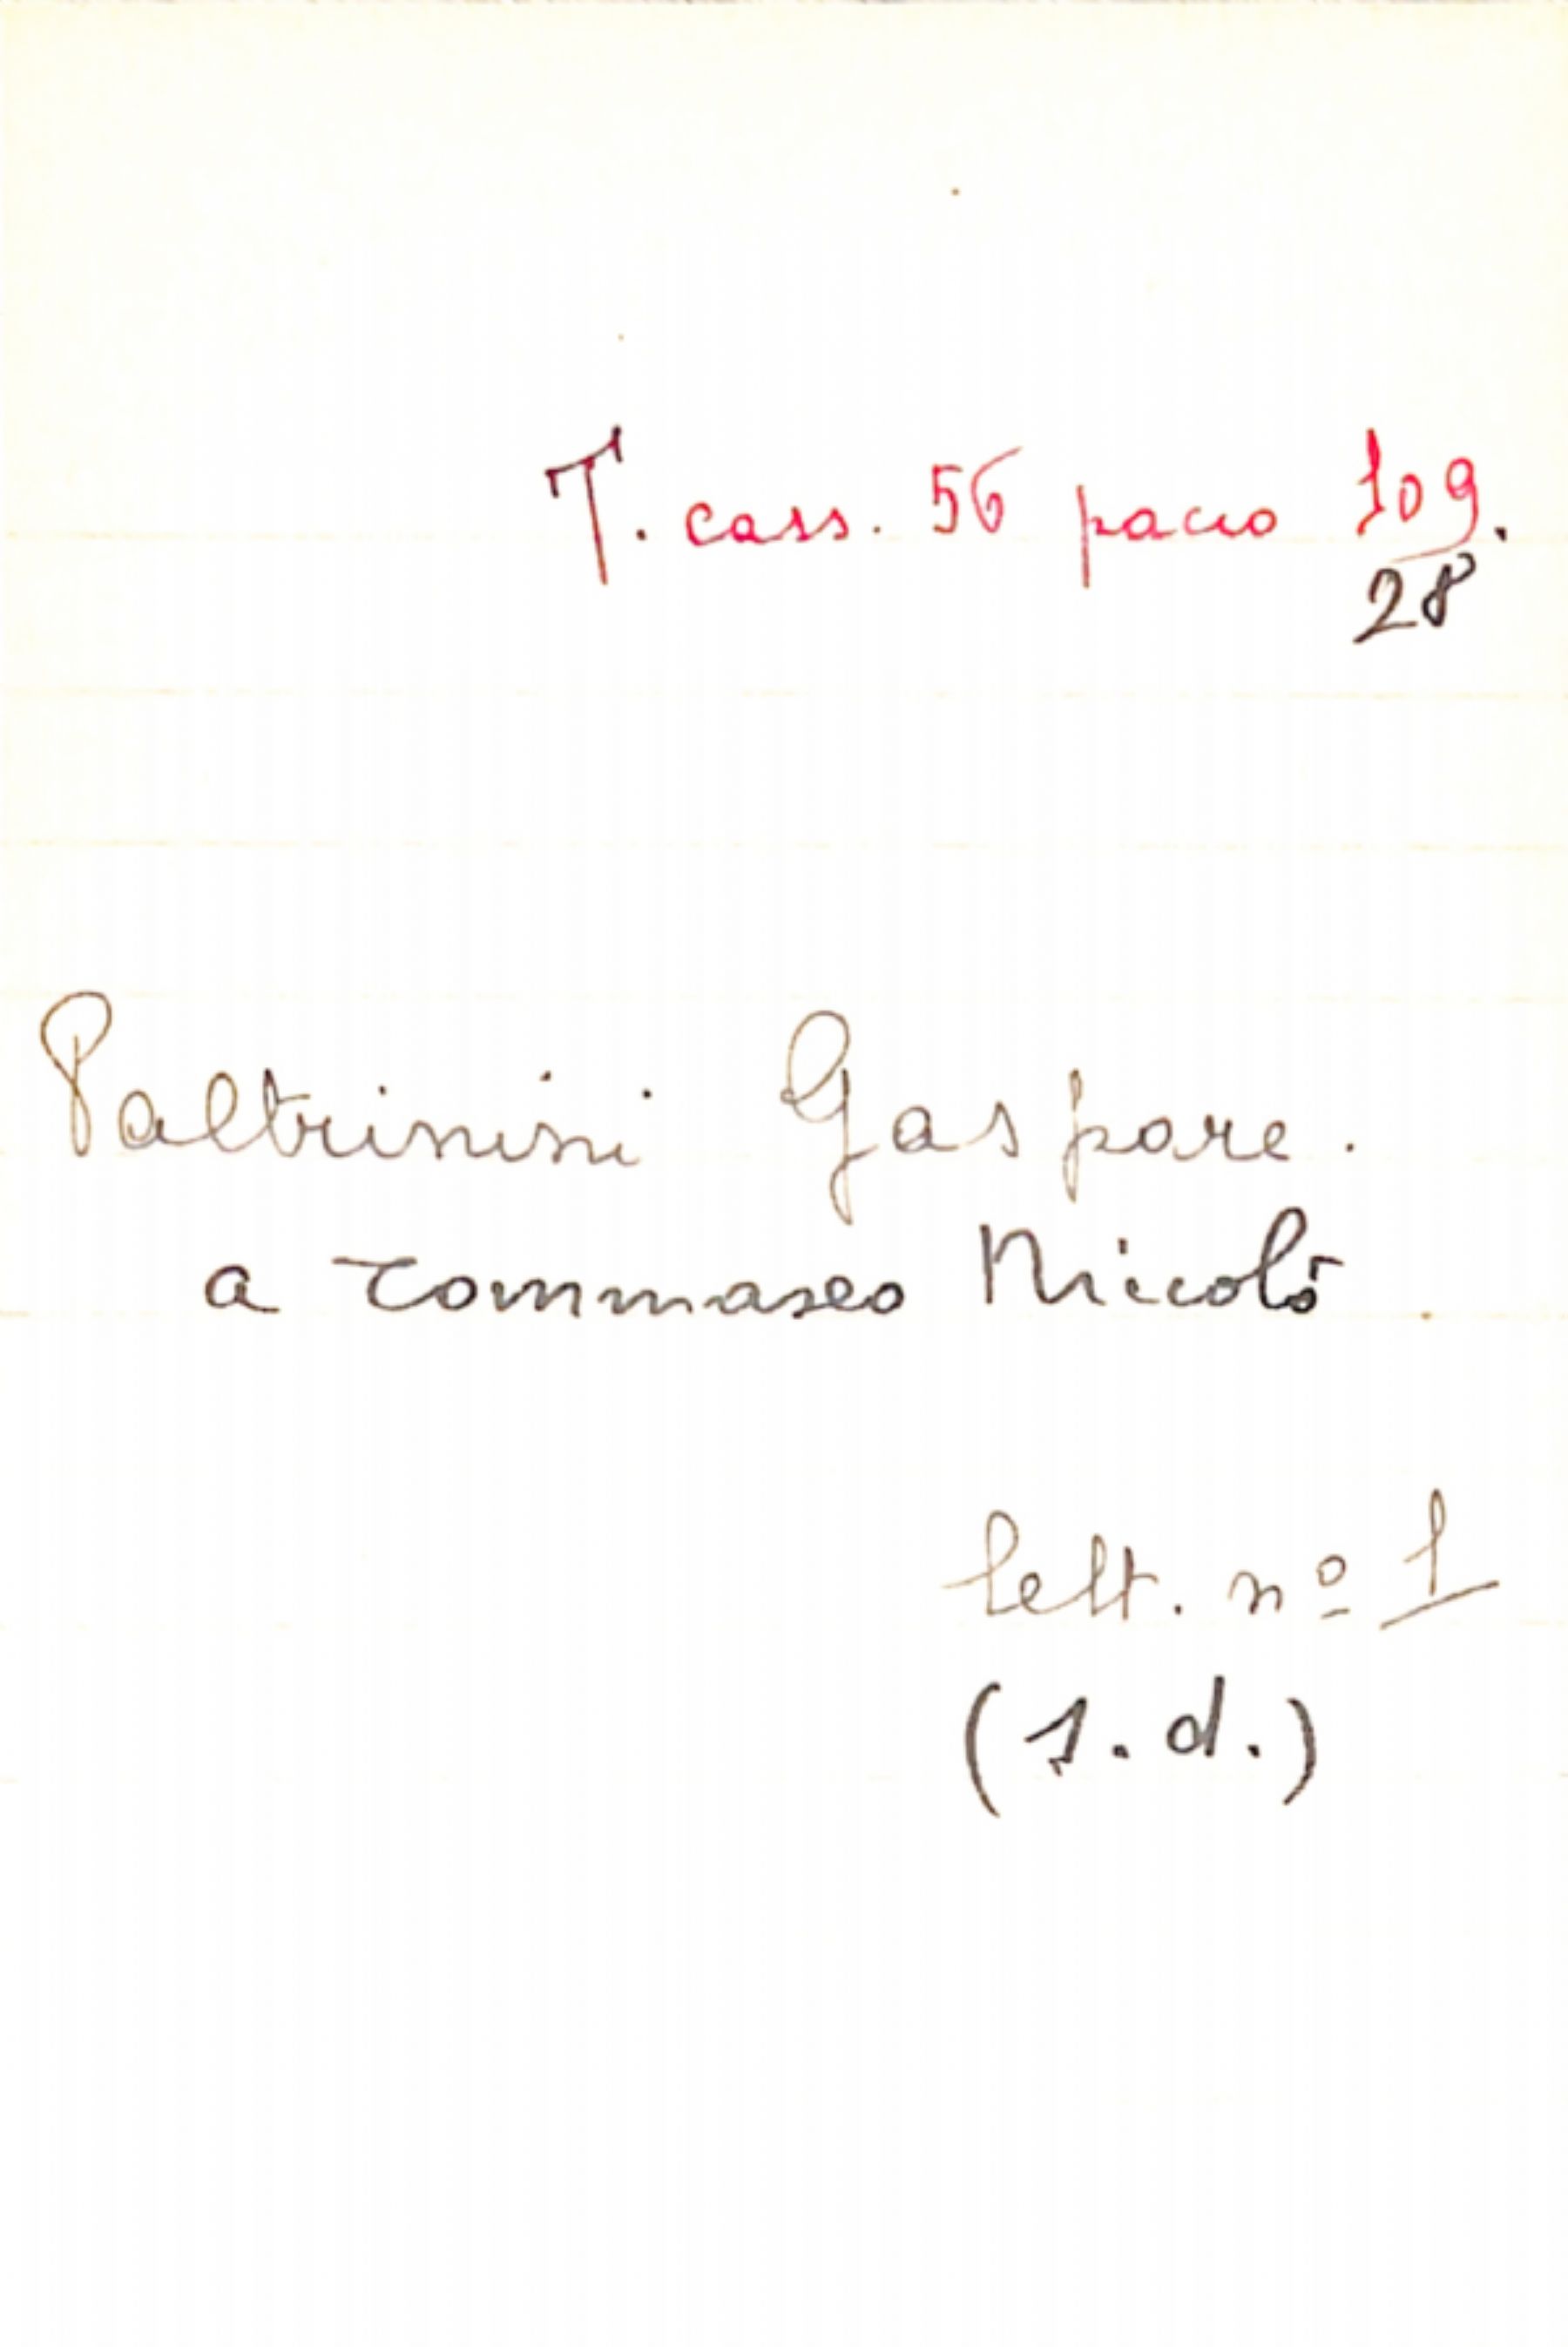 T. cass. 56 pacco 109.
28
Paltrinini Gaspare.
a Tommaseo Niccolò
lett. nº 1
(s.d.)